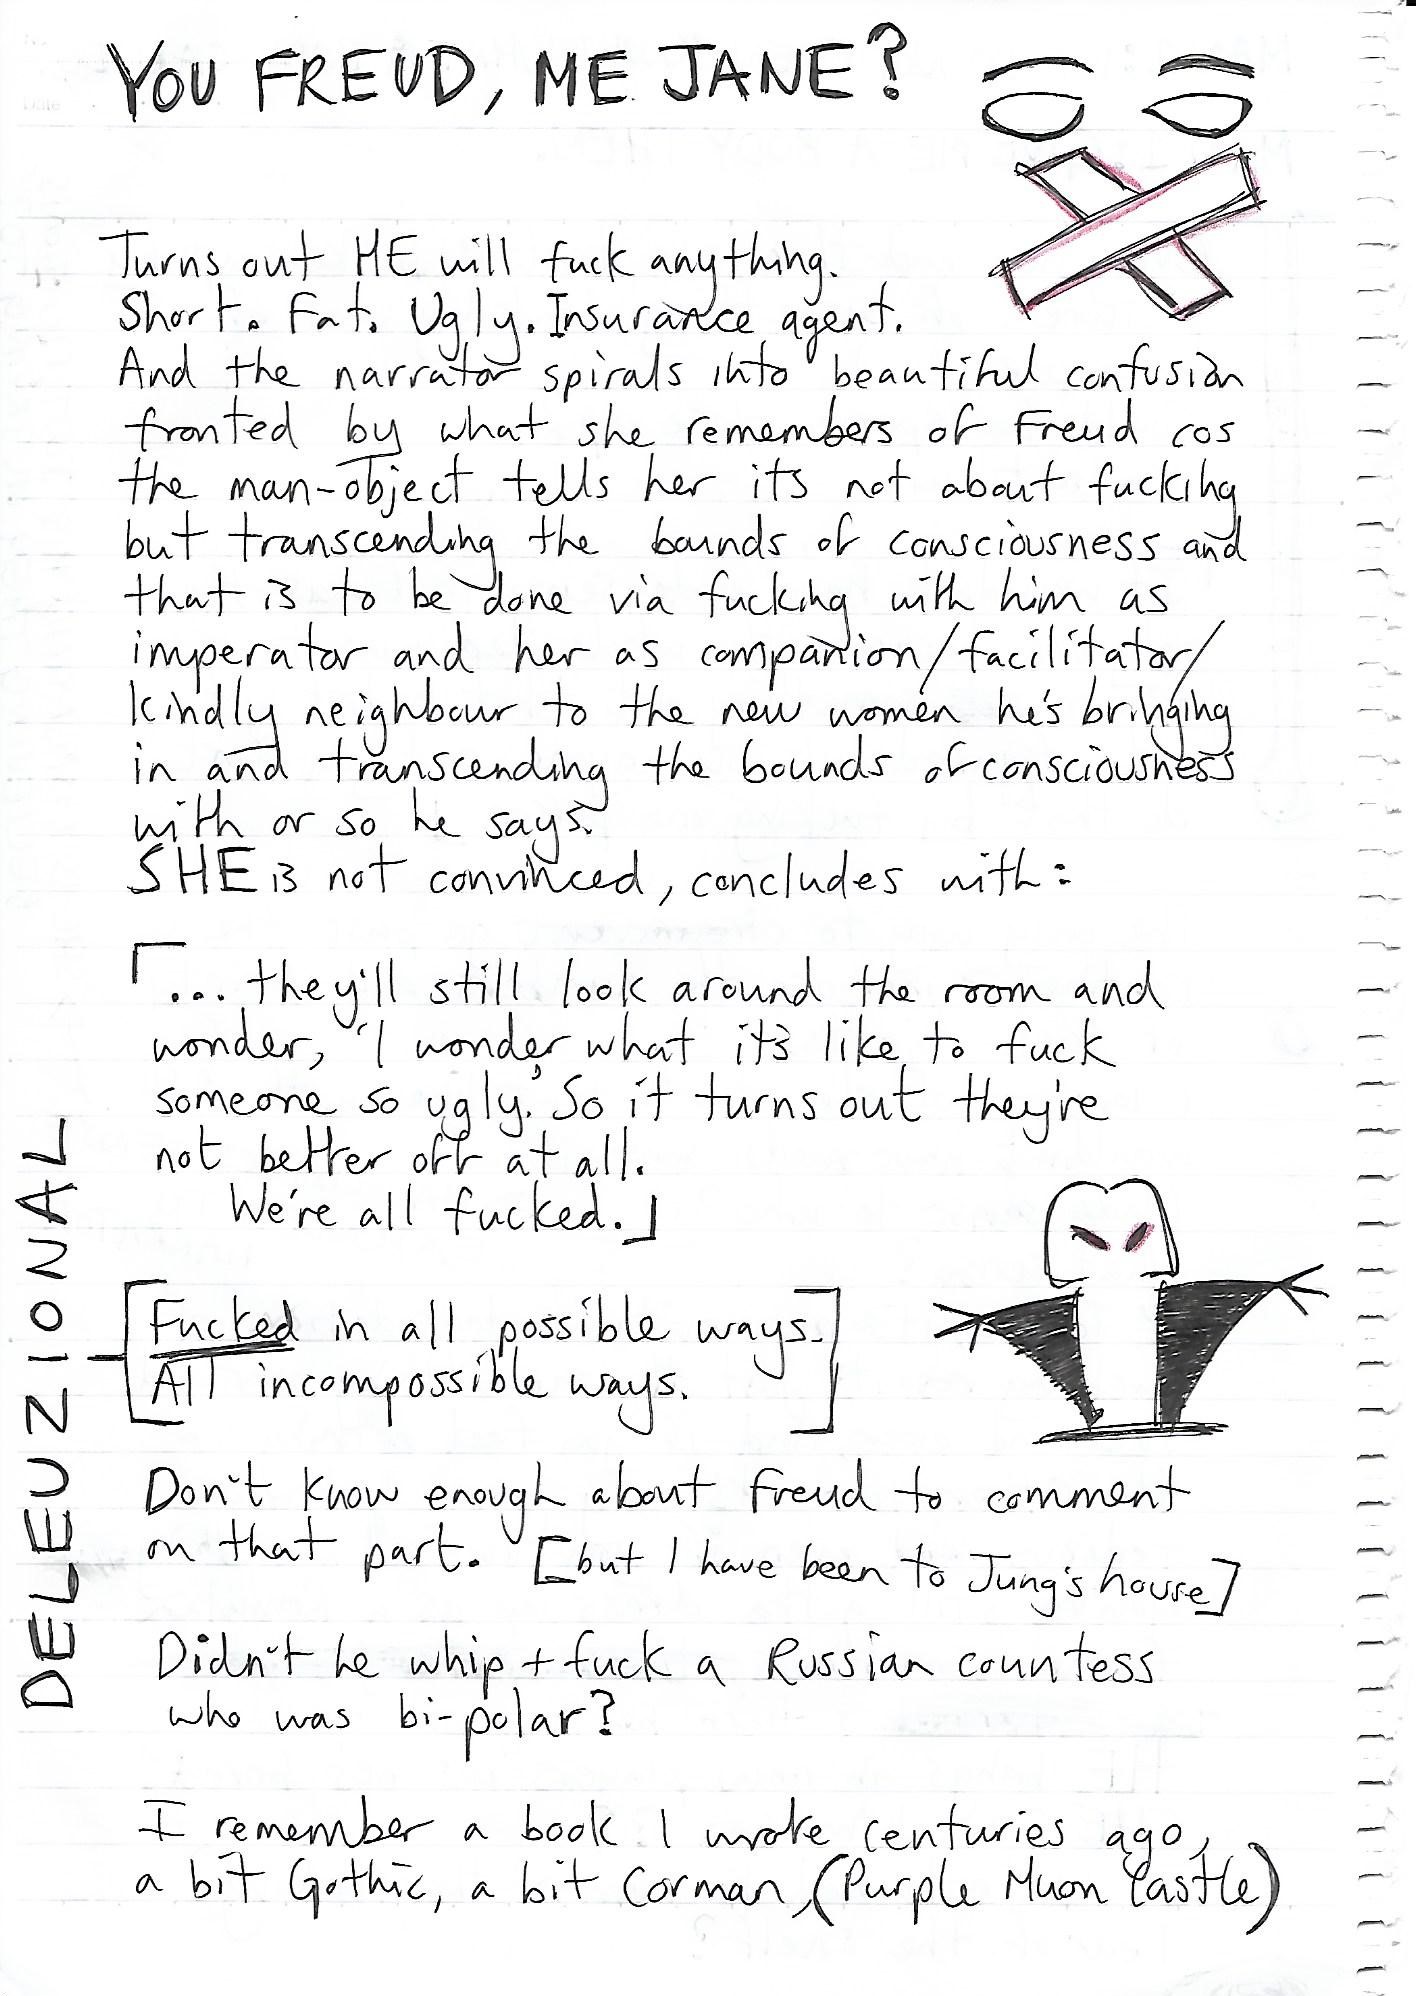 YOU FREUD, ME JANE?
Turns out HE will fuck anything.
Short. Fat. Ugly. Insurance agent.
And the narrator spirals into beautiful confusion
fronted by what she remembers of Freud cos
the man-object tells her it's not about fucking
but transcending the bounds of consciousness and
that is to be done via fucking with him as
imperator and her as companion/facilitator/
kindly neighbour to the new women he's bringing
in and transcending the bounds of consciousness
with or so he says.
SHE is not convinced, concludes with:
「... they'll still look around the room and
wonder, 'I wonder what it's like to fuck
someone so ugly.' So it turns out they're
not better off at all.
We're all fucked.」
DELEUZIONAL
[Fucked in all possible ways.
All incompossible ways.]
Don't know enough about Freud to comment
on that part. [but I have been to Jung's house]
Didn't he whip + fuck a Russian countess
who was bi-polar?
I remember a book I wrote centuries ago,
a bit Gothic, a bit Corman, (Purple Muon Castle)